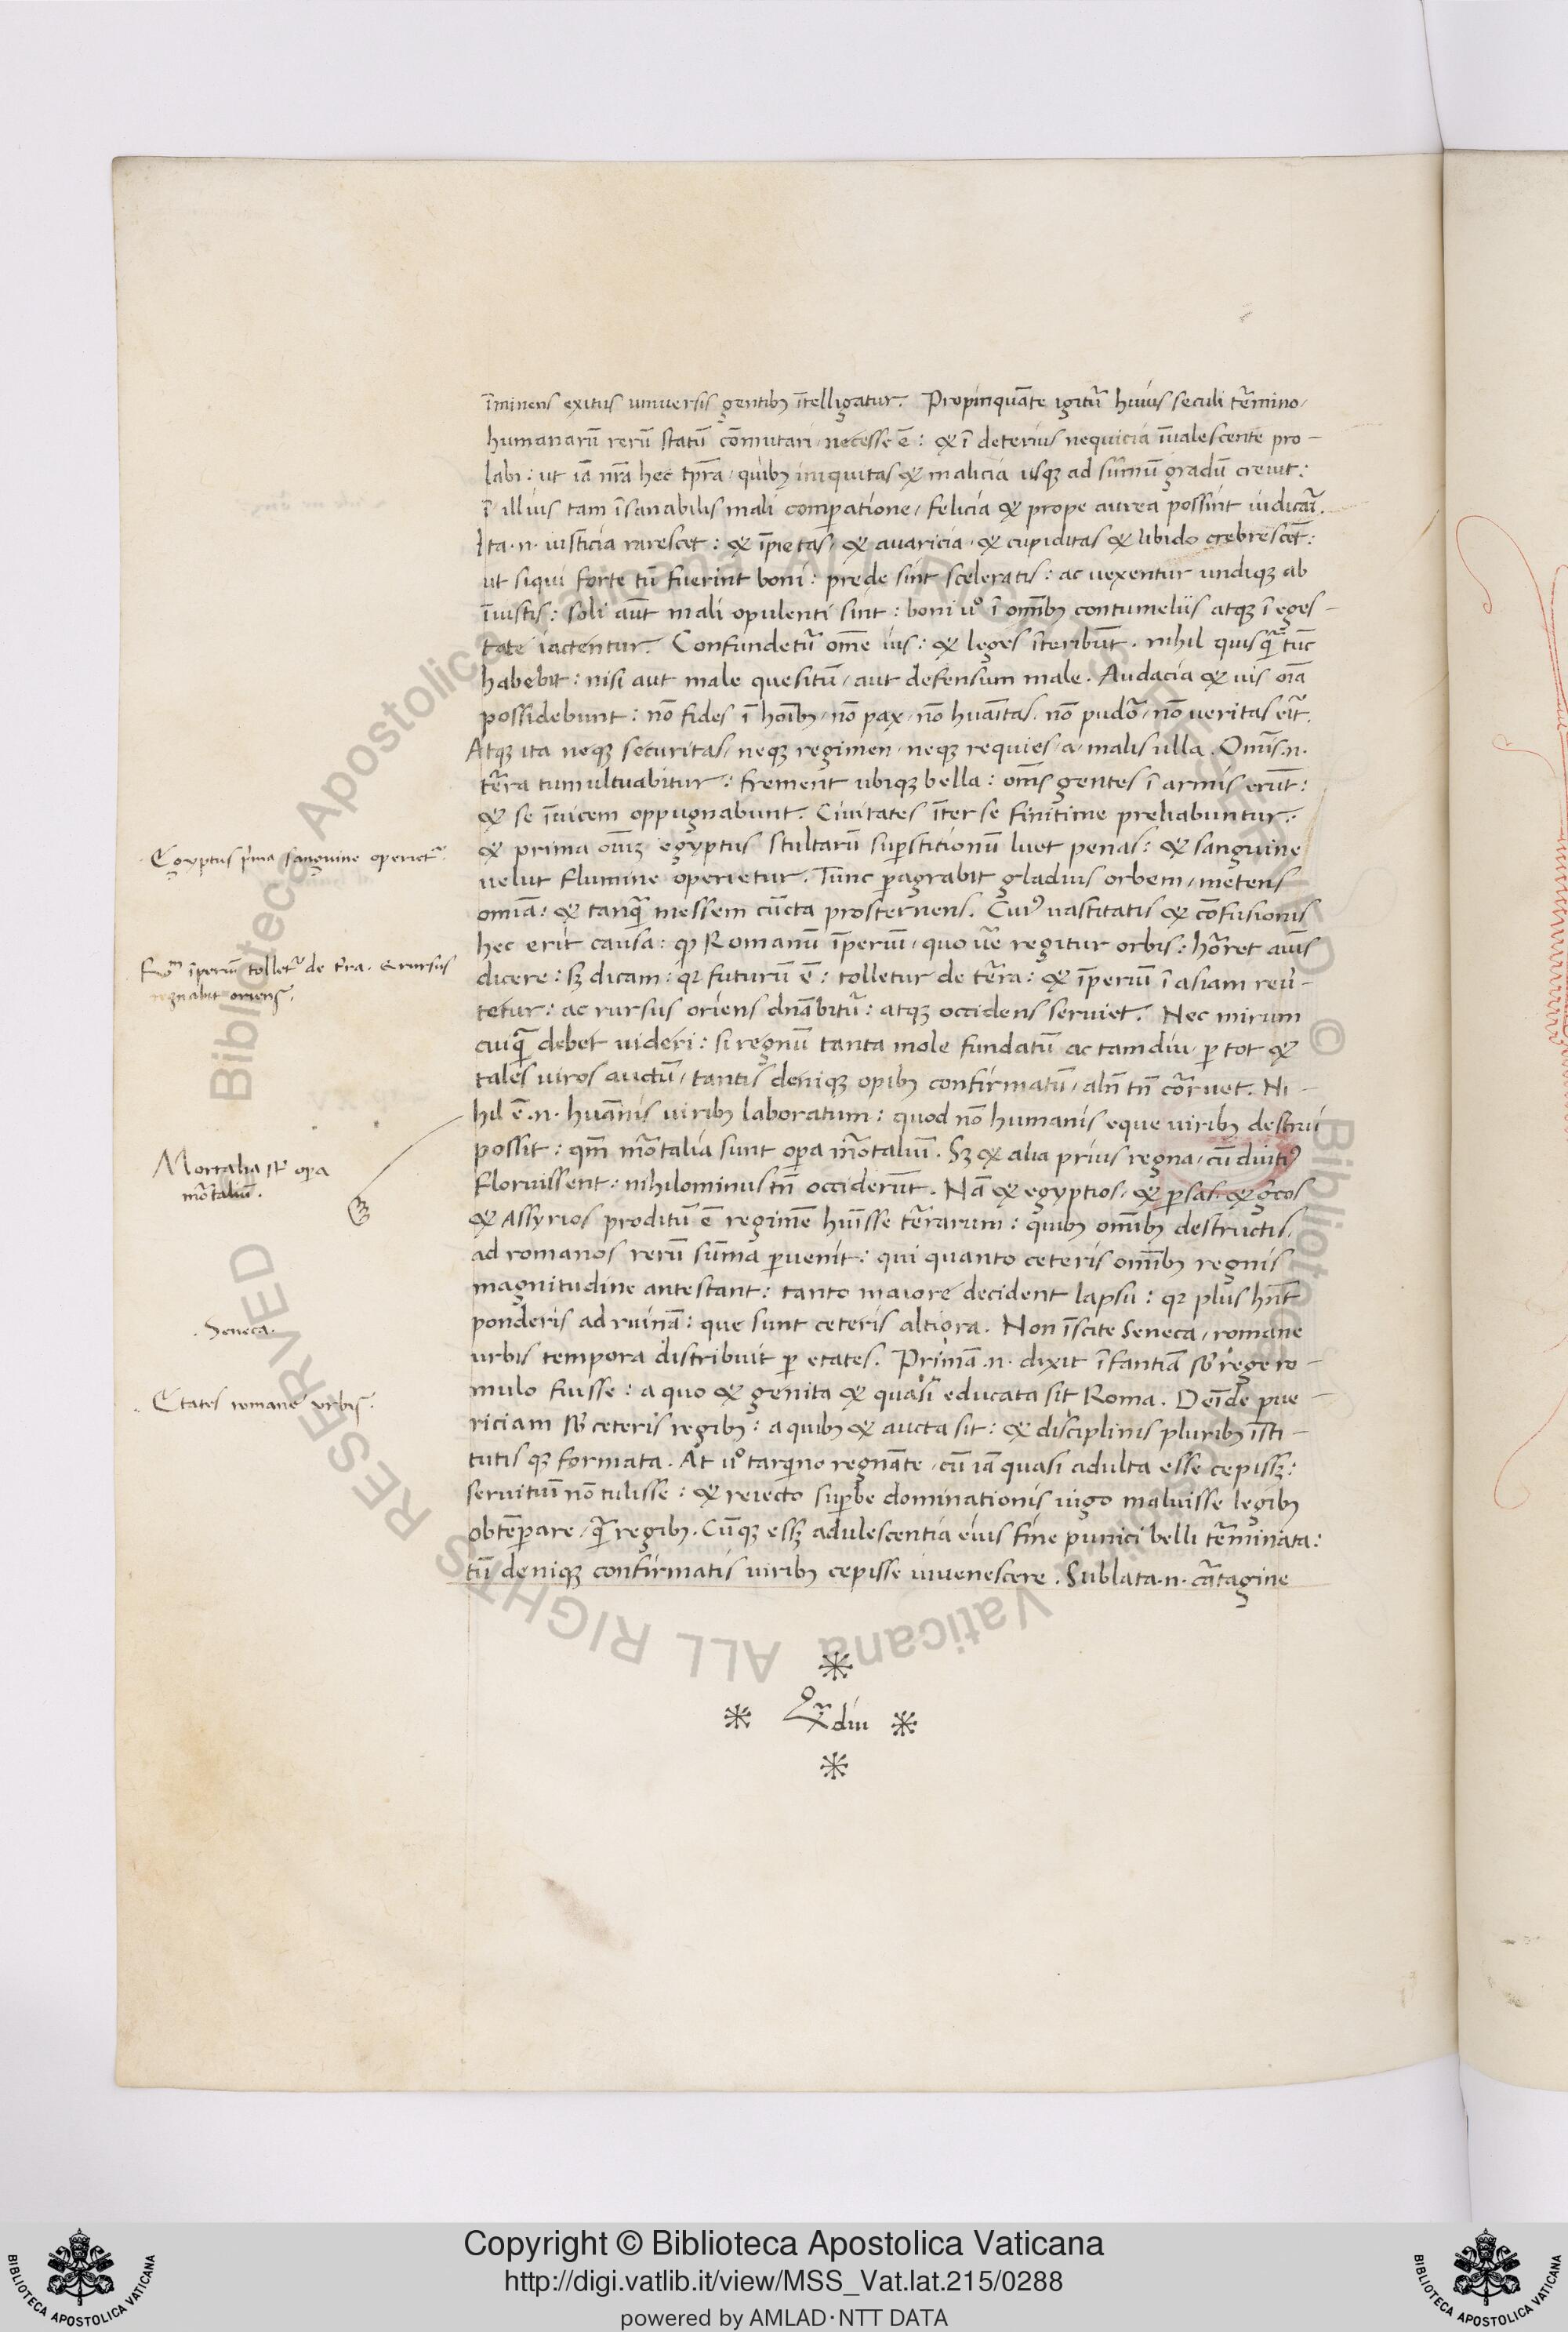 īminens exitus universis gentibꝫ ītelligatur. Propinquāte igitũ huius seculi t̃mino,
humanarũ rerũ statũ cōmutari, necesse ē: & ī deterius nequicia īualescente pro-
labi: ut iā nr̄a hec tp̄ra, quibꝫ iniquitas & malicia usqꝫ ad sũmũ gradũ creuit:
ī illius tam īsanabilis mali comp̱atione, felicia & prope aurea possint iudicar̃.
Ita .n. iusticia rarescet: & īpietas, & auaricia, & cupiditas & libido crebrescēt:
ut siqui forte tũ fuerint boni: prede sint sceleratis: ac uexentur undiqꝫ ab
īiustis: soli aūt mali opulenti sint: boni uº ī omībꝫ contumeliis atqꝫ ī eges-
tate iactentur. Confundetũ ōme ius: & leges īteribūt. nihil quisq̃ tūc
habebit: nisi aut male quesitũ, aut defensum male. Audacia & uis oīa
possidebunt: nō fides ī hoībꝫ, nō pax, nō huāitas, nō pudōr, nō ueritas er̃it.
Atqꝫ ita neqꝫ securitas, neqꝫ regimen, neqꝫ requies, a, malis ulla. Omīs .n.
t̃ra tumultuabitur: frement ubiqꝫ bella: omīs gentes ī armis erūt:
& se īuicem oppugnabunt. Ciuitates īter se finitime preliabuntur.
& prima omīꝫ egyptus stultarũ sup̱stitionũ luet penas: & sanguine
uelut flumine operietur. Tunc p̱agrabit gladius orbem, metens
omīa: & tanq̃ messem cūcta prosternens. Cuiꝰ uastitatis & cōfusionis
hec erit causa: qꝫ Romanũ īperiũ, quo nūc regitur orbis: hōrret aīus
dicere: sꝫ dicam: qꝛ futurũ ē: tolletur de t̃ra: & īperiũ ī asiam reũ-
tetur: ac rursus oriens dn̄abitũ: atqꝫ occidens seruiet. Nec mirum
cuiq̃ debet uideri: si regnũ tanta mole fundatũ ac tamdiu, p̱ tot &
tales uiros auctũ, tantis deniqꝫ opibꝫ confirmatũ, aln̄ tn̄ cōrruet. Ni-
hil ē .n. huāis uiribꝫ laboratum: quod nō humanis eque uiribꝫ destrui
possit: qm̄ mōrtalia sunt op̱a mōrtaliũ. Sꝫ & alia prius regna, cū diutiꝰ
floruissent: nihilominus tn̄ occiderūt. Nā & egyptios, & p̱sas, & gr̄cos
& Assyrios proditũ ē regimē huīsse t̃rarum: quibꝫ omībꝫ destructis,
ad romanos rerũ sũma p̱uenit: qui quanto ceteris omībꝫ regnis
magnitudine antestant: tanto maiore decident lapsu: qꝛ plus hn̄t
ponderis ad ruinā: que sunt ceteris altiora. Non īscite Seneca, romane
urbis tempora distribuit p̱ etates. Primā .n. dixit īfantiā sb̄ rege ro-
mulo fuisse: a quo & genita & quasi educata sit Roma. Deīde pue-
riciam sb̄ ceteris regibꝫ: a quibꝫ & aucta sit: & disciplinis pluribꝫ īsti-
tutis qꝫ formata. At uº tarqīno regnāte, cũ iā quasi adulta esse cepissꝫ:
seruitiũ nō tulisse: & reiecto sup̱be dominationis iugo maluisse legibꝫ
obtēp̱are, q̃ regibꝫ. Cūqꝫ essꝫ adulescentia eius fine punici belli t̃minata:
tũ deniqꝫ confirmatis uiribꝫ cepisse iuuenescere. Sublata .n. cārtagine
Egyptus p̄ma sanguine operietr̃.
īperiũ tolletr̃ de t̃ra. & rursus
regnabit oriens.
Mortalia st̄ op̱a
mōrtaliũ.
Seneca.
Etates romane urbis.
diu
Biblioteca Apostolica Vaticana ALL RIGHTS RESERVED ©
Copyright © Biblioteca Apostolica Vaticana
http://digi.vatlib.it/view/MSS_Vat.lat.215/0288
powered by AMLAD·NTT DATA
BIBLIOTECA APOSTOLICA VATICANA
BIBLIOTECA APOSTOLICA VATICANA